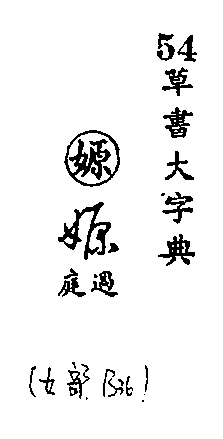 54草書大字典
嫄
嫄
過庭
(女部 B36)